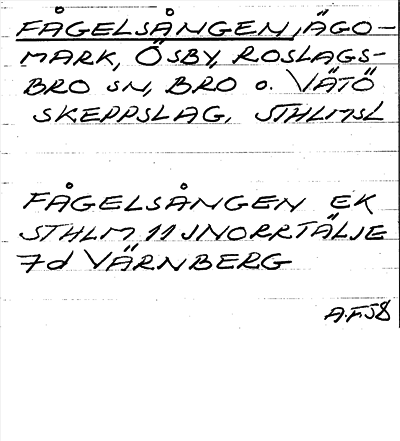 FÅGELSÅNGEN, ÄGO-
MARK, ÖSBY, ROSLAGS-
BRO SN, BRO O. VÄTÖ
SKEPPSLAG, STHLMSL
FÅGELSÅNGEN EK
STHLM 11 J NORRTÄLJE
7d VÄRNBERG
A.F.58